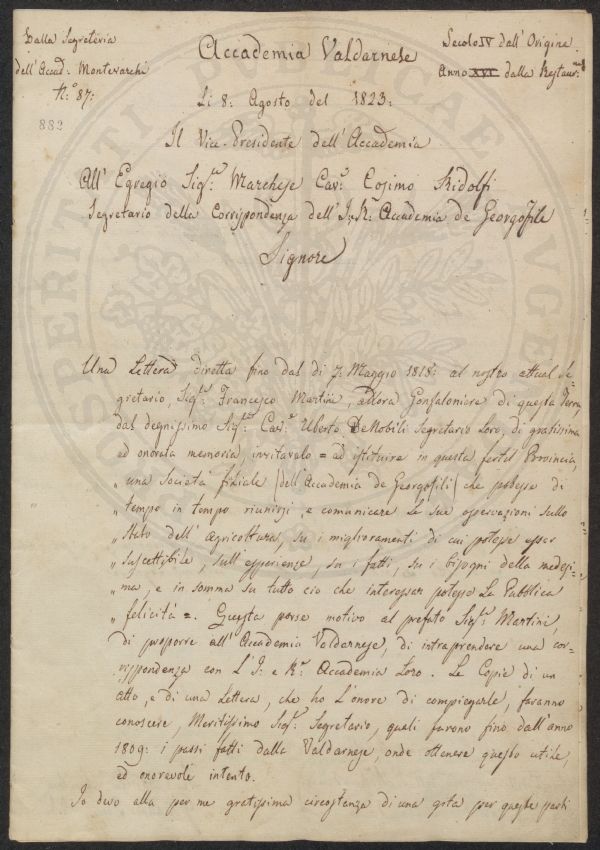 Dalla Segreteria
dell'Accad: Montevarchi
N.° 87:
882
Accademia Valdarnese
Secolo IV dall'Origine
Anno XVI dalla Restaur:ne
Li 8: Agosto del 1823:
Il Vice-Presidente dell'Accademia
All'Egregio Sig.r Marchese Cav.r Cosimo Ridolfi
Segretario della Corrispondenza dell'I: R: Accademia de Georgofili
Signore
Una Lettera diretta fino dal di 7: Maggio 1818: al nostro attual Se=
gretario, Sig.r Francesco Martini, allora Gonfaloniere di questa Terra,
dal degnissimo Sig.r Cav.r Uberto DeNobili Segretario Loro, di gratissima
ed onorata memoria, invitavalo = ad istituire in questa fertil Provincia,
„ una Società filiale (dell'Accademia de Georgofili) che potesse di
„ tempo in tempo riunirsi, e comunicare le sue osservazioni sullo
„ stato dell'Agricoltura, su i miglioramenti di cui potesse esser
„ suscettibile, sull'esperienze, su i fatti, su i bisogni della medesi=
„ ma, e in somma su tutto ciò che interessar potesse la Pubblica
„ felicità =. Questa porse motivo al prefato Sig.r Martini,
di proporre all'Accademia Valdarnese, di intraprendere una cor=
rispondenza con L'I: e R: Accademia Loro. Le Copie di un
atto, e di una Lettera, che ho L'onore di compiegarle, faranno
conoscere, Meritissimo Sig.r Segretario, quali furono fino dall'anno
1809: i passi fatti dalla Valdarnese, onde ottenere questo utile,
ed onorevole intento.
Io devo alla per me gratissima circostanza di una gita per queste parti